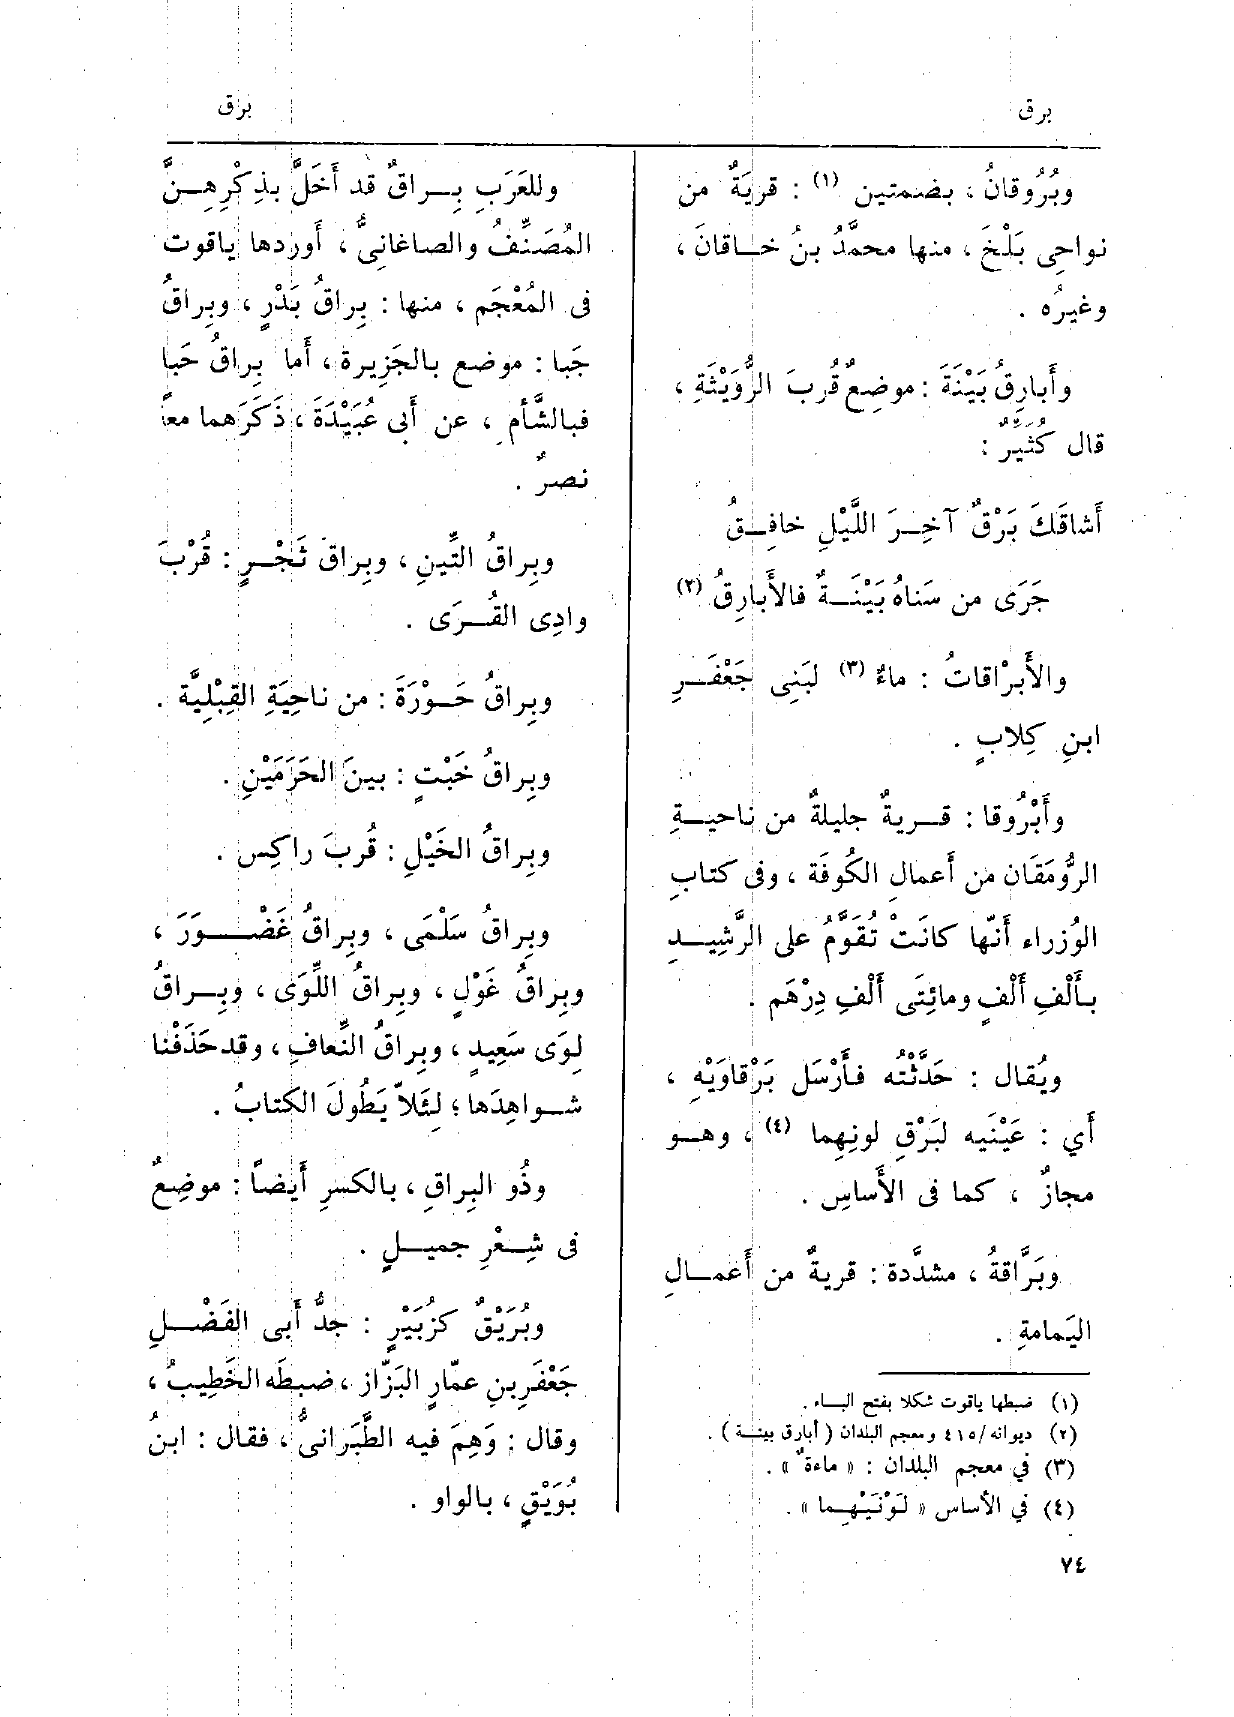 برق
برق
وبُرُوقانُ ، بضمتين (١) : قريَةٌ من
نواحِى بَلْخَ ، منها محمَّدُ بنُ خــاقانَ ،
وغيرُه .
وأَبارِقُ بَيْنَةَ : موضِعٌ قُربَ الرُّوَيْثَةِ ،
قال كُثَيِّرٌ :
أَشاقَكَ بَرْقٌ آخِــرَ اللَّيْلِ خافِــقُ
جَرَى من سَناهُ بَيْنَــةٌ فالأَبارِقُ (٢)
والأَبْراقاتُ : ماءٌ (٣) لبَنِى جَعْفَــرِ
ابنِ كِلابٍ .
وأَبْرُوقا : قــريةٌ جليلةٌ من ناحيــةِ
الرُّومَقَان من أَعمالِ الكُوفَة ، وفى كتابِ
الوُزراء أَنّها كانَتْ تُقوَّمُ على الرَّشِيــدِ
بأَلْفِ أَلْفٍ ومائِتَى أَلْفِ دِرْهَم .
ويُقال : حَدَّثْتُه فأَرْسَل بَرْقاوَيْهِ ،
أي : عَيْنَيه لبَرْقِ لونِهِما (٤) ، وهــو
مجازٌ ، كما فى الأَساسِ .
وبَرَّاقةُ ، مشدَّدة : قريةٌ من أَعمــالِ
اليَمامةِ .
(١) ضبطها ياقوت شكلا بفتح البــاء .
(٢) ديوانه /٤١٥ ومعجم البلدان ( أبارق بينــة ) .
(٣) في معجم البلدان : « ماءةٌ » .
(٤) في الأساس « لَوْنَيْهِما » .
وللعَرَبِ بِــراقٌ قد أَخَلَّ بذِكْرِهِــنَّ
المُصَنِّفُ والصاغانِىُّ ، أَوردها ياقوت
فى المُعْجَم ، منها : بِراقُ بَدْرٍ ، وبِراقُ
جَبا : موضع بالجَزِيرة ، أَما بِراقُ حَبا
فبالشَّأم ، عن أَبى عُبَيْدَةَ ، ذَكَرَهما معاً
نصرٌ .
وبِراقُ التِّينِ ، وبِراقُ ثَجْــرٍ : قُرْبَ
وادِى القُــرَى .
وبِراقُ حَــوْرَةَ : من ناحِيَةِ القِبْلِيَّة .
وبِراقُ خَبْتٍ : بينَ الحَرَمَيْنِ .
وبِراقُ الخَيْلِ : قُربَ راكِس .
وبِراقُ سَلْمَى ، وبِراقُ غَضْــوَرَ ،
وبِراقُ غَوْلٍ ، وبِراقُ اللِّوَى ، وبِــراقُ
لِوَى سَعِيدٍ ، وبِراقُ النِّعافِ ، وقد حَذَفْنا
شــواهِدَها ؛ لِئَلاّ يَطُولَ الكتابُ .
وذُو البِراقِ ، بالكسرِ أَيضاً : موضِعٌ
فى شِــعْرِ جميــلٍ .
وبُرَيْقٌ كزُبَيْرٍ : جدُّ أَبى الفَضْــلِ
جَعْفَرِ بنِ عمّارٍ البَزّاز ، ضبطَه الخَطِيبُ ،
وقال : وَهِمَ فيه الطَّبَرانىُّ ، فقال : ابنُ
بُوَيْقٍ ، بالواو .
٧٤